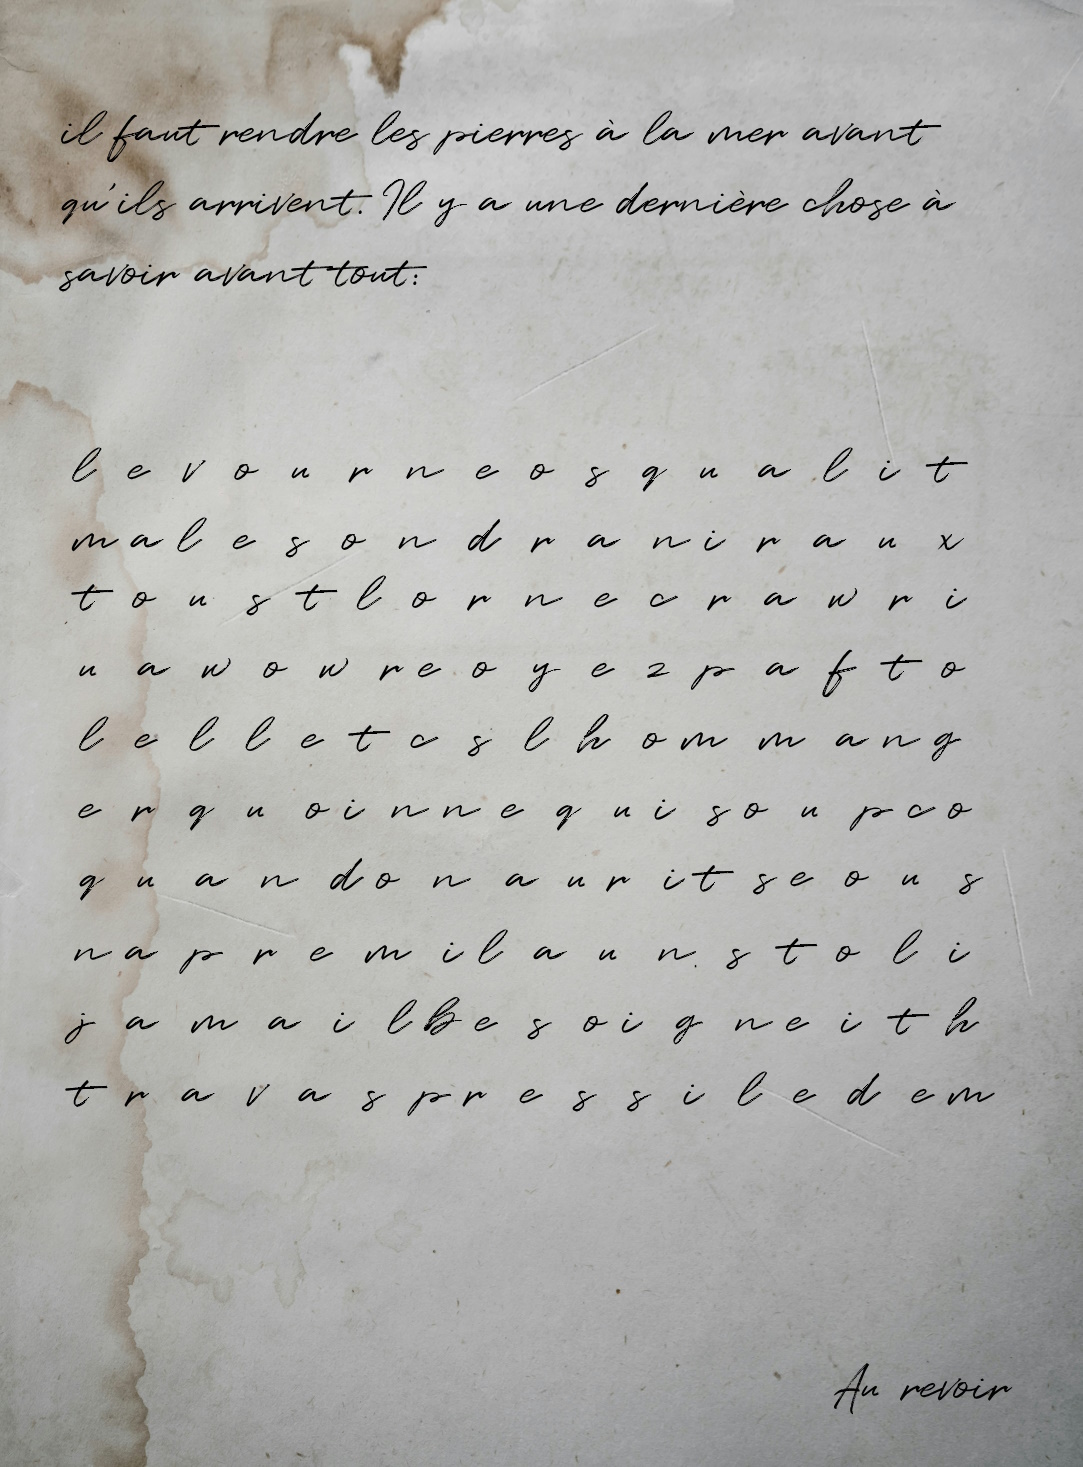 il faut rendre les pierres à la mer avant
qu'ils arrivent. Il y a une dernière chose à
savoir avant tout:
l e v o u r n e o s q u a l i t
m a l e s o n d r a n i r a u x
t o u s t l o r n e c r a w r i
u a w o w r e o y e z p a f t o
l e l l e t c s l h o m m a n g
e r q u o i n n e q u i s o u p c o
q u a n d o n a u r i t s e o u s
n a p r e m i l a u n s t o l i
j a m a i l b e s o i g n e i t h
t r a v a s p r e s s i l e d e m
Au revoir